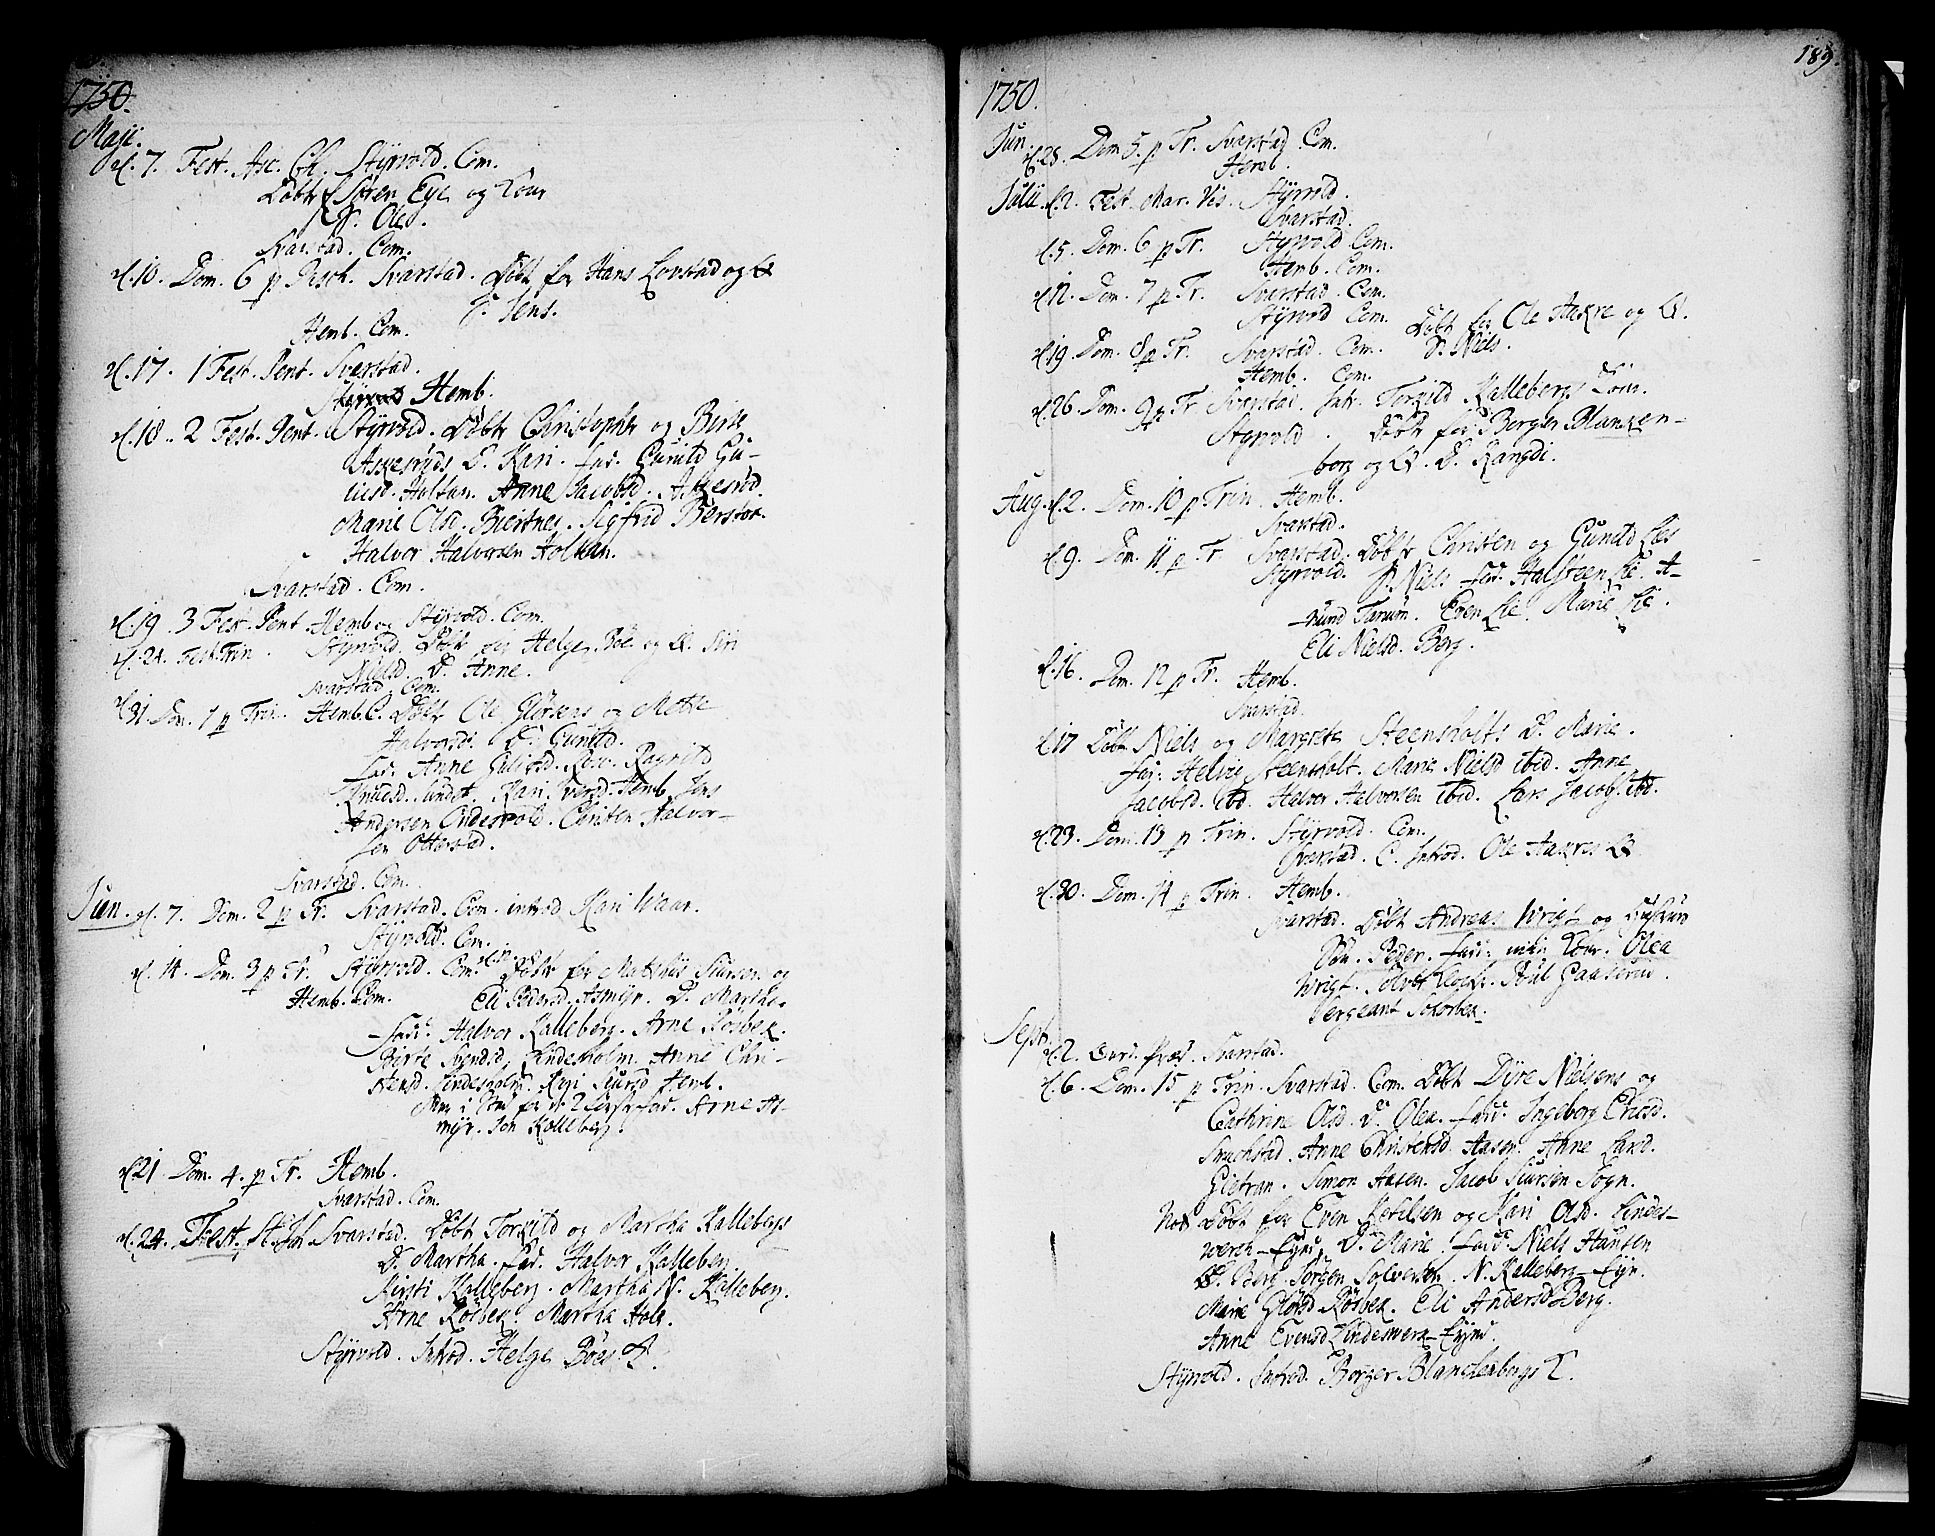 1750.
Maji.
d. 7. Fest. Asc. Ch. Styrvold. Com.
Døbt Søren Eye og Kone
S. Ole.
Svarstad. Com.
d. 10. Dom. 6 p Pasch. Svarstad. Døbt for Hans Lovstad og
S. Jens.
Hemb. Com.
d. 17. 1 Fest. Pent. Svarstad.
Hemb.
d. 18. 2 Fest. Pent. Styrvold. Døbt Christopher og Birte
Askerøds D. Kari. fad. Gunild Gu-
liksd. Holtan. Anne Jacobsd. Askerød.
Marie Olsd. Biertnes. Sigfrid Berstor.
Halvor Halvorsen Holtan.
Svarstad. Com.
d. 19. 3 Fest. Pent Hemb og Styrvold. Com.
d. 24. Fest. Trin. Styrvold. Døbt for Helge Bøe og Siri
Nielsd. D. Anne.
Svarstad Com.
d. 31. Dom. 1 p Trin. Hemb. C. Døbt Ole Glørsens og Mette
Halvorsd: D. Gunild.
Fad. Anne Gulicsd. Ragnild
Knudsd. Kari Iversd. Hemb Jens
Andersen Christen Halvor-
sen Otterstad.
Svarstad. Com.
Jun. d. 7. Dom. 2 p Tr. Svarstad. Com. introd. Kari Waar.
Styrvold. Com.
d. 14. Dom. 3 p Tr. Styrvold. Com. Døbt for Matthiis Siursen og
Hemb. Com. Eli Pedersd. Asmyr. D. Marthe.
Fad: Halvor Kalleberg. Arne Røsbek.
Birte Svendsd. Lindesholm. Anne Chri-
stensd. Lindesholm. Kari Siursd Hemb.
for d. 2 Arne As-
myr. Jon Kolleberg.
d. 21 Dom. 4. p Tr. Hemb.
Svarstad. Com.
d. 24. Fest. St. Joh Svarstad. Døbt Torkild og Martha Kallebergs
D. Martha. fad. Halvor Kalleberg.
Kirsti Kalleberg. Martha N. Kalleberg.
Arne Røsbek. Martha Holg.
Styrvold. Introd. Helge Bøes
189.
1750.
Jun. d. 28. Dom 5. p Tr. Svarstad. Com.
Hemb.
Julii d. 2. Fest. Mar. Vis. Styrvold.
Svarstad.
d. 5. Dom. 6 p Tr. Styrvold Com.
Hemb. Com.
d. 12. Dom. 7 p Tr. Svarstad. Com.
Styrvold Com.
d. 19. Dom. 8 p Tr. Svarstad. Com. Døbt for Ole Aakre og
Hemb. Com. S. Niels.
d. 26. Dom. 9 p Tr Svarstad. Intr. Torkild Kallebergs Kone.
Styrvold. Døbt for Børger Blanken-
borg og D. Rangdi.
Aug. d. 2. Dom. 10 p Trin. Hemb.
Svarstad.
d. 9. Dom. 11 p Tr Svarstad. Døbt Christen og Gunild Lies
Styrvold. S. Niels fad. Halsteen Lie. A-
mund Tanum. Even Lie. Marie Lie.
Eli Nielsd. Berg.
d. 16. Dom. 12 p Tr. Hemb.
Svarstad.
d. 17 Døbt Niels og Margrete Steensholts D. Marie.
fad: Helvig Steensholt. Marie Nielsd ibid. Anne
Jacobsd. ibd. Halvor Halvorsen ibid. Lars Jacobs. ibd.
d. 23. Dom. 13 p Trin. Styrvold. Com.
Svarstad. C. Introd. Ole Aakres
d. 30. Dom. 14 p Trin. Hemb.
Svarstad. Døbt Andreas Wrigt og Hustrue
Søn. Peder. fad: min Kone. Olea
Wrigt. Poul Gaaserud.
Sergeant
Sept. d. 2. Svarstad.
d. 6. Dom. 15 p Trin. Svarstad. Com. Døbt Dyre Nielsens og
Cathrine Olsd. D. Olea. fad: Ingeborg Ericsd.
Anne Christensd. Aasen. Anne Larsd.
Simon Aasen. Jacob Siursen Sogn.
Not Døbt for Even Ketilsen og Kari Olsd. Lindes-
werch-Eyns D. Marie. fad: Niels Hansen
Berg. Jørgen Solversen. N. Kalleberg-Eyn.
Marie Glørsd Røsbek. Eli Andersd Berg.
Anne Evensd Lindeswerk-Eyns.
Styrvold. Introd. Børger Blanchenbergs K.